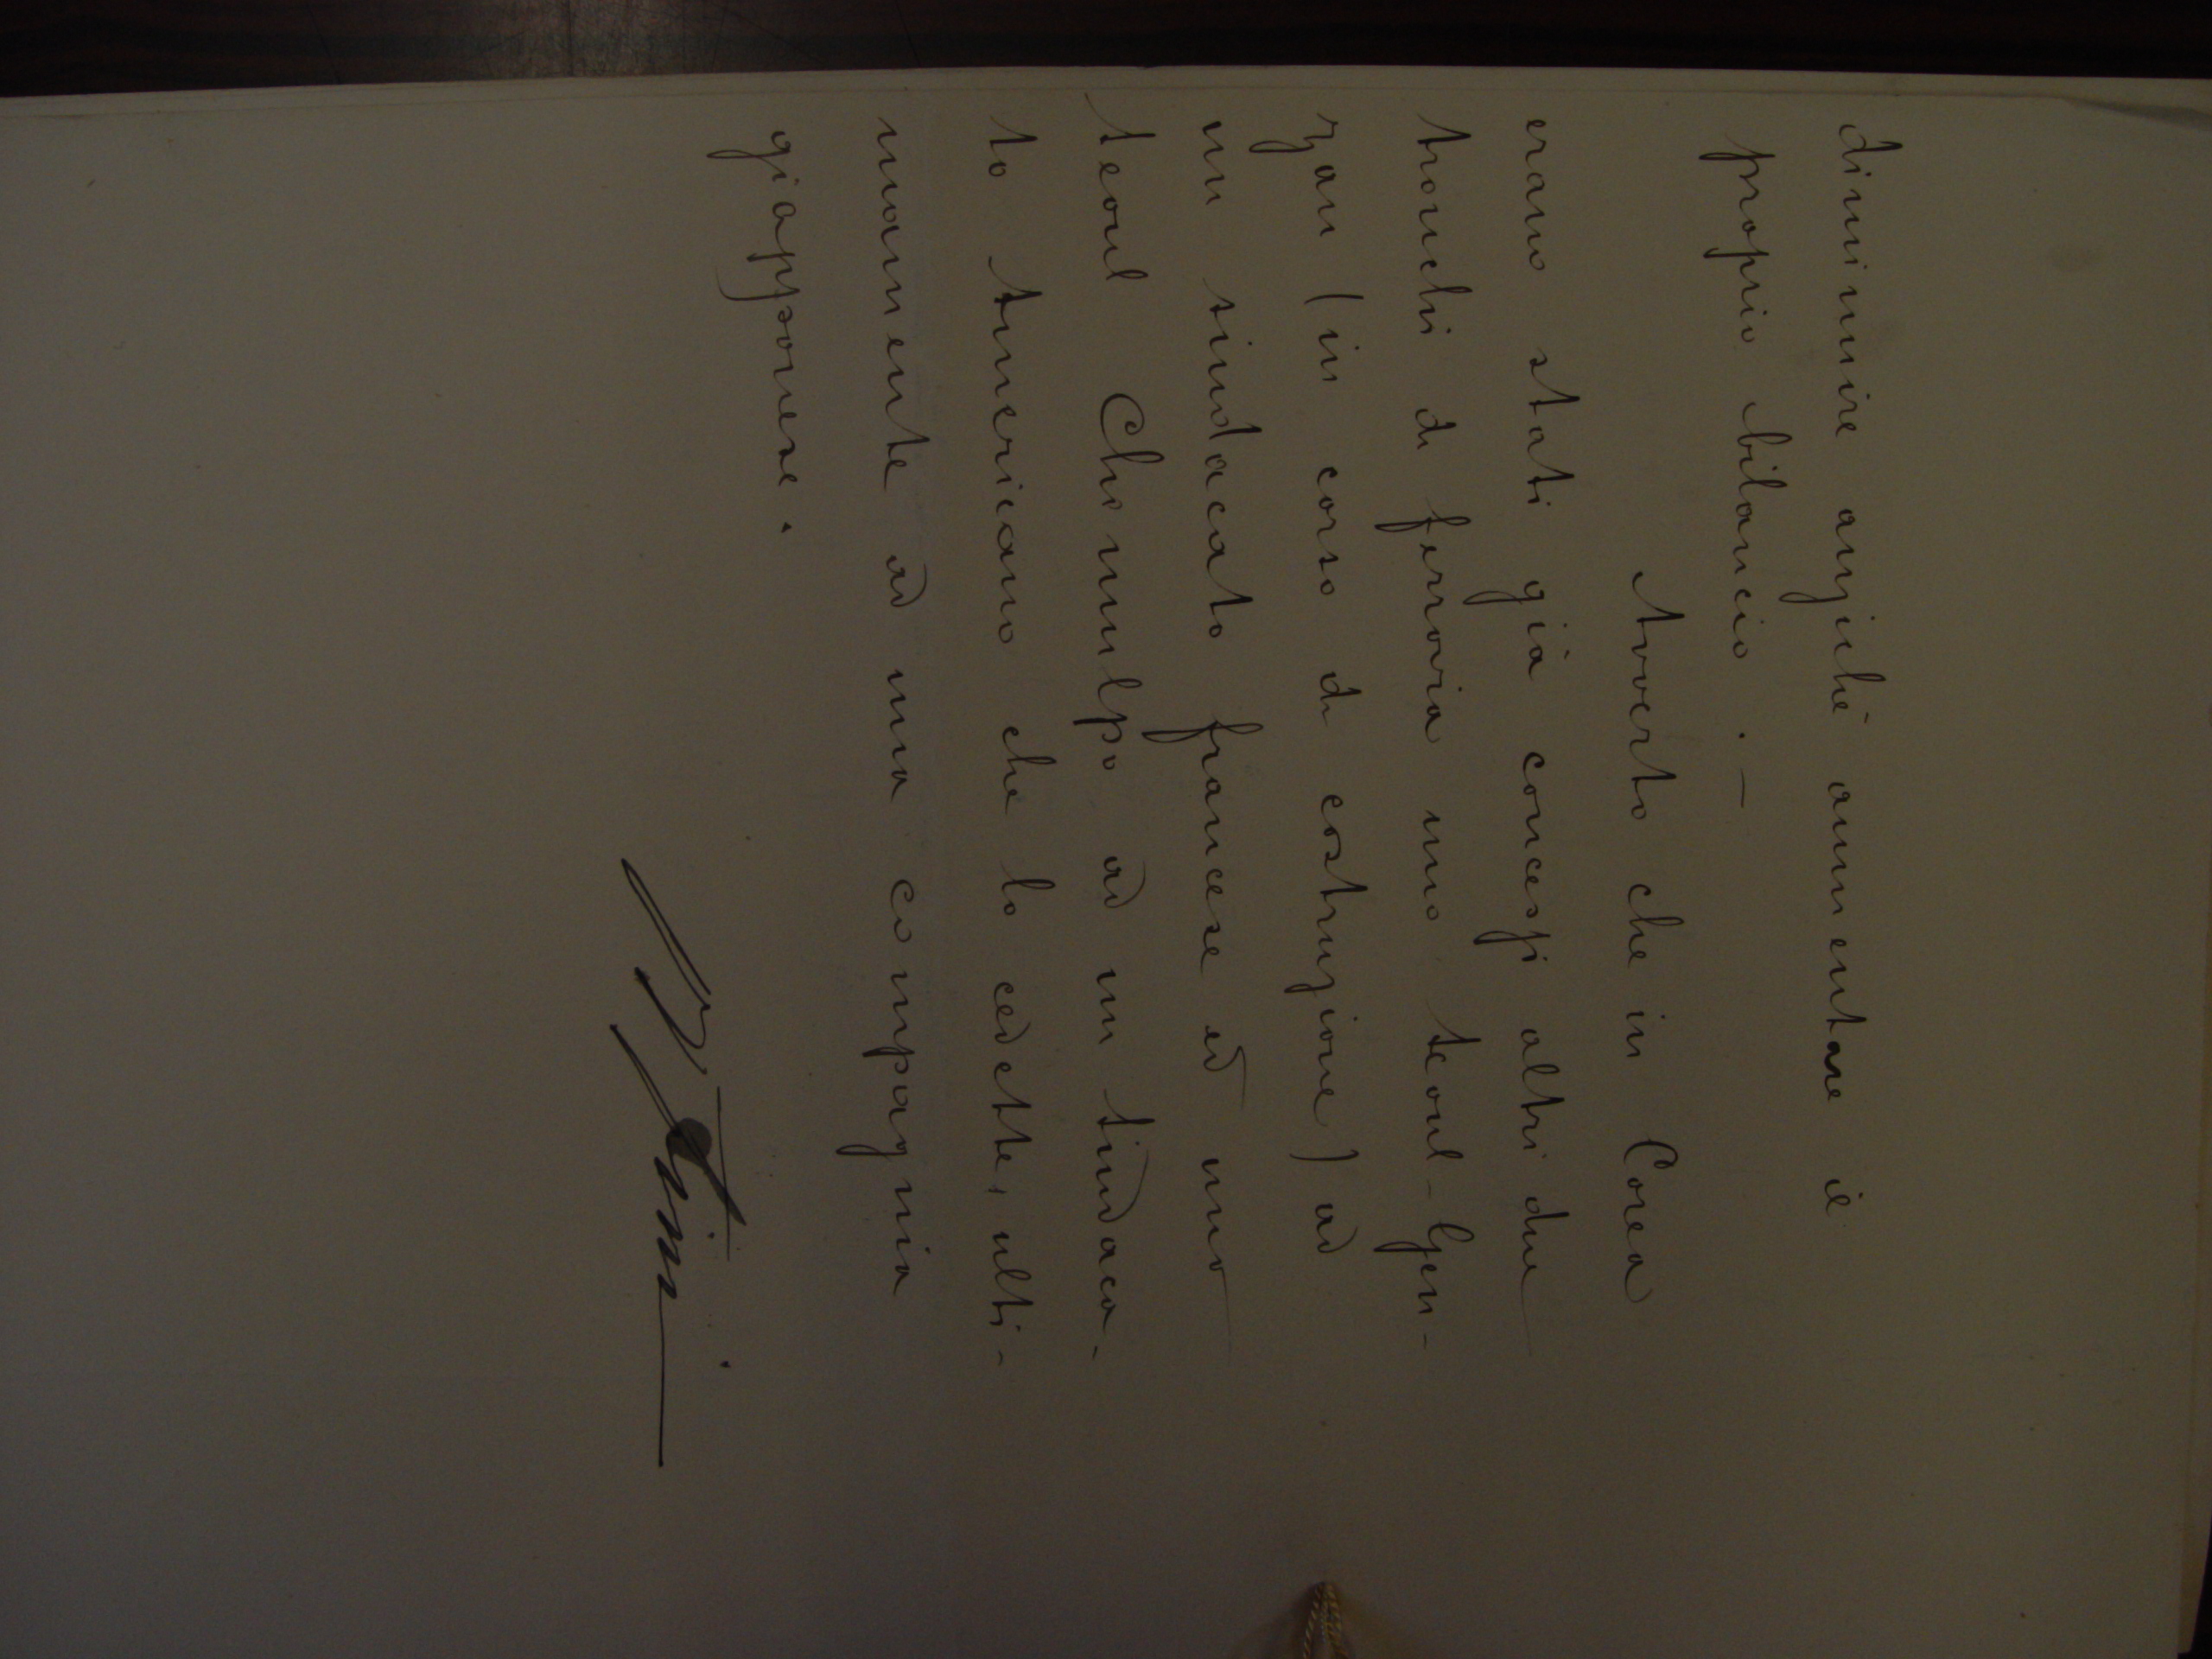 diminuire anzichè aumentare il
proprio bilancio. —
Avverto che in Corea
erano stati già concessi altri due
tronchi di ferrovia uno Seoul-Gen-
zan (in corso di costruzione) ad
un sindacato francese ed uno
Seoul Chimulpo ad un Sindaca-
to Americano che lo cedette, ulti-
mamente ad una compagnia
giapponese.